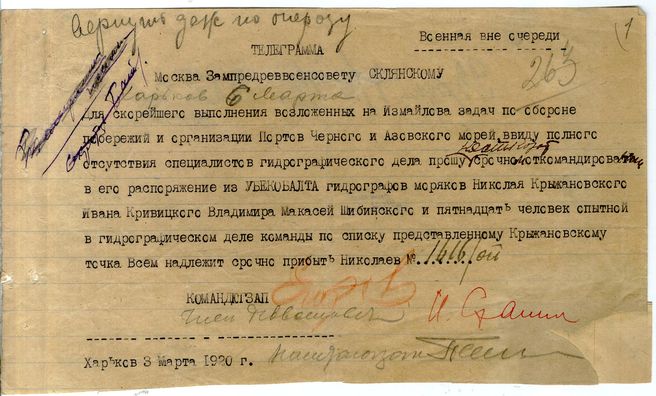 Вернуть дела по опероду
1
Военная вне очереди
ТЕЛЕГРАММА
Москва Зампредреввоенсовету СКЛЯНСКОМУ
263
Харьков 6 марта
Для скорейшего выполнения возложенных на Измайлова задач по обороне
побережий и организации Портов Черного и Азовского морей, ввиду полного
отсутствия специалистов гидрографического дела прошу срочно откомандировать
в его распоряжение из УБЕКОБАЛТА гидрографов моряков Николая Крыжановского
Ивана Кривицкого Владимира Макасей Шибинского и пятнадцать человек опытной
в гидрографическом деле команды по списку представленному Крыжановскому
точка Всем надлежит срочно прибыть Николаев № 1416/оп
КОМАНДЮГЗАП Егоров
Член Реввоенсовета И. Сталин
Харьков 3 Марта 1920 г.